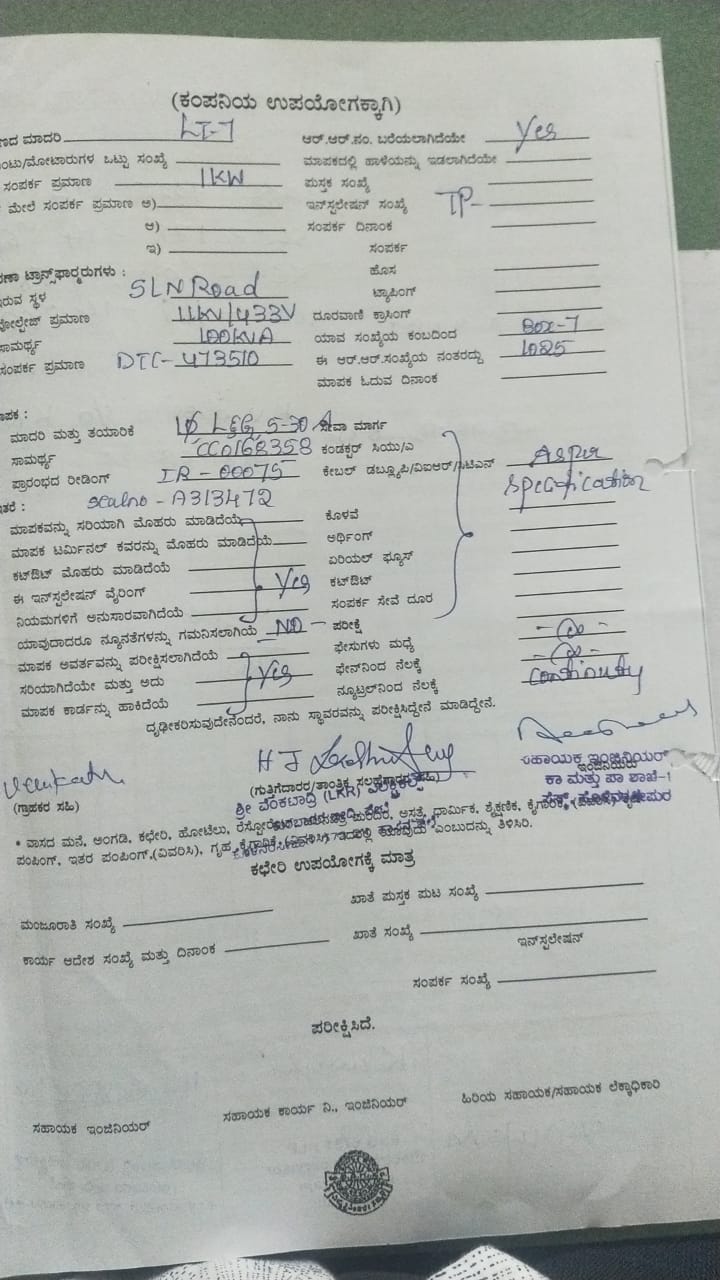 (ಕಂಪನಿಯ ಉಪಯೋಗಕ್ಕಾಗಿ)
ಣದ ಮಾದರಿ LT-7 ಆರ್.ಆರ್.ನಂ. ಬರೆಯಲಾಗಿದೆಯೇ Yes
ಂಟು/ಮೋಟಾರುಗಳ ಒಟ್ಟು ಸಂಖ್ಯೆ ಮಾಪಕದಲ್ಲಿ ಹಾಳೆಯನ್ನು ಇಡಲಾಗಿದೆಯೇ
ಸಂಪರ್ಕ ಪ್ರಮಾಣ 1KW ಪುಸ್ತಕ ಸಂಖ್ಯೆ
ಮೇಲೆ ಸಂಪರ್ಕ ಪ್ರಮಾಣ ಅ) ಇನ್‌ಸ್ಟಲೇಷನ್ ಸಂಖ್ಯೆ TP-
ಆ) ಸಂಪರ್ಕ ದಿನಾಂಕ
ಇ) ಸಂಪರ್ಕ
ಣಾ ಟ್ರಾನ್ಸ್‌ಫಾರ್‍ಮರುಗಳು : ಹೊಸ
ಇರುವ ಸ್ಥಳ SLN Road ಟ್ಯಾಪಿಂಗ್
ವೋಲ್ಟೇಜ್ ಪ್ರಮಾಣ 11KV/433V ದೂರವಾಣಿ ಕ್ರಾಸಿಂಗ್
ಸಾಮರ್ಥ್ಯ 100KVA ಯಾವ ಸಂಖ್ಯೆಯ ಕಂಬದಿಂದ Box-7
ಸಂಪರ್ಕ ಪ್ರಮಾಣ DTC-473510 ಈ ಆರ್.ಆರ್.ಸಂಖ್ಯೆಯ ನಂತರದ್ದು 1025
ಮಾಪಕ ಓದುವ ದಿನಾಂಕ
ಾಪಕ :
ಮಾದರಿ ಮತ್ತು ತಯಾರಿಕೆ 1Ø L&G 5-30 A ಸೇವಾ ಮಾರ್ಗ
ಸಾಮರ್ಥ್ಯ CC0168358 ಕಂಡಕ್ಟರ್ ಸಿಯು/ಎ
ಪ್ರಾರಂಭದ ರೀಡಿಂಗ್ IR-00075 ಕೇಬಲ್ ಡಬ್ಲ್ಯೂಪಿ/ವಿಐಆರ್/ಸಿಟಿಎನ್ As per
ಇತರೆ : sealno - A313472 specification
ಮಾಪಕವನ್ನು ಸರಿಯಾಗಿ ಮೊಹರು ಮಾಡಿದೆಯೆ ಕೊಳವೆ
ಮಾಪಕ ಟರ್ಮಿನಲ್ ಕವರನ್ನು ಮೊಹರು ಮಾಡಿದೆಯೆ ಅರ್ಥಿಂಗ್
ಕಟ್‌ಔಟ್ ಮೊಹರು ಮಾಡಿದೆಯೆ ಏರಿಯಲ್ ಫ್ಯೂಸ್
ಈ ಇನ್‌ಸ್ಟಲೇಷನ್ ವೈರಿಂಗ್ Yes ಕಟ್‌ಔಟ್
ನಿಯಮಗಳಿಗೆ ಅನುಸಾರವಾಗಿದೆಯೆ ಸಂಪರ್ಕ ಸೇವೆ ದೂರ
ಯಾವುದಾದರೂ ನ್ಯೂನತೆಗಳನ್ನು ಗಮನಿಸಲಾಗಿಯೆ NO ಪರೀಕ್ಷೆ
ಮಾಪಕ ಆವರ್ತವನ್ನು ಪರೀಕ್ಷಿಸಲಾಗಿದೆಯೆ ಫೇಸುಗಳು ಮಧ್ಯೆ - ∞ -
ಸರಿಯಾಗಿದೆಯೇ ಮತ್ತು ಅದು Yes ಫೇಸ್‌ನಿಂದ ನೆಲಕ್ಕೆ - ∞ -
ಮಾಪಕ ಕಾರ್ಡನ್ನು ಹಾಕಿದೆಯೆ ನ್ಯೂಟ್ರಲ್‌ನಿಂದ ನೆಲಕ್ಕೆ Continuty
ದೃಢೀಕರಿಸುವುದೇನೆಂದರೆ, ನಾನು ಸ್ಥಾವರವನ್ನು ಪರೀಕ್ಷಿಸಿದ್ದೇನೆ ಮಾಡಿದ್ದೇನೆ.
(ಗ್ರಾಹಕರ ಸಹಿ) (ಗುತ್ತಿಗೆದಾರರ/ತಾಂತ್ರಿಕ ಸಲಹೆಗಾರರ ಸಹಿ) ಸಹಾಯಕ ಇಂಜಿನಿಯರ್
ಶ್ರೀ ವೆಂಕಟಾದ್ರಿ (LKR) ಎಲೆಕ್ಟ್ರಿಕಲ್ಸ್ ಕಾ ಮತ್ತು ಪಾ ಶಾಖೆ-1
* ವಾಸದ ಮನೆ, ಅಂಗಡಿ, ಕಛೇರಿ, ಹೋಟೆಲು, ಆಸ್ಪತ್ರೆ, ಧಾರ್ಮಿಕ, ಶೈಕ್ಷಣಿಕ,
ಪಂಪಿಂಗ್, ಇತರ ಪಂಪಿಂಗ್,(ವಿವರಿಸಿ), ಗೃಹ ಕೈಗಾರಿಕೆ ಎಂಬುದನ್ನು ತಿಳಿಸಿರಿ.
ಕಛೇರಿ ಉಪಯೋಗಕ್ಕೆ ಮಾತ್ರ
ಮಂಜೂರಾತಿ ಸಂಖ್ಯೆ ಖಾತೆ ಪುಸ್ತಕ ಪುಟ ಸಂಖ್ಯೆ
ಕಾರ್ಯ ಆದೇಶ ಸಂಖ್ಯೆ ಮತ್ತು ದಿನಾಂಕ ಖಾತೆ ಸಂಖ್ಯೆ
ಇನ್‌ಸ್ಪಲೇಷನ್
ಸಂಪರ್ಕ ಸಂಖ್ಯೆ
ಪರೀಕ್ಷಿಸಿದೆ.
ಸಹಾಯಕ ಇಂಜಿನಿಯರ್ ಸಹಾಯಕ ಕಾರ್ಯ ನಿ., ಇಂಜಿನಿಯರ್ ಹಿರಿಯ ಸಹಾಯಕ/ಸಹಾಯಕ ಲೆಕ್ಕಾಧಿಕಾರಿ